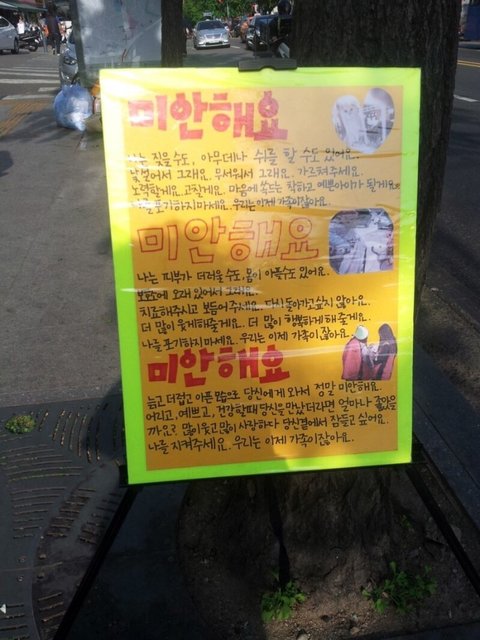 미안해요
나는 짖을 수도, 아무데나 쉬를 할 수도 있어요.
낯설어서 그래요. 무서워서 그래요. 가르쳐주세요.
노력할게요. 고칠게요. 마음에 쏙드는 착하고 예쁜아이가 될게요.
나를 포기하지마세요. 우리는 이제 가족이잖아요.
미안해요
나는 피부가 더러울 수도, 몸이 아플수도 있어요.
보호소에 오래 있어서 그래요.
치료해주시고 보듬어주세요. 다시 돌아가고 싶지 않아요.
더 많이 웃게해줄게요. 더 많이 행복하게 해줄게요.
나를 포기하지 마세요. 우리는 이제 가족이 잖아요.
미안해요
늙고 더럽고 아픈 몸으로 당신에게 와서 정말 미안해요.
어리고, 예쁘고, 건강할때 당신을 만났더라면 얼마나 좋았을
까요? 많이 웃고 많이 사랑하다 당신곁에서 잠들고 싶어요.
나를 지켜주세요. 우리는 이제 가족이잖아요.